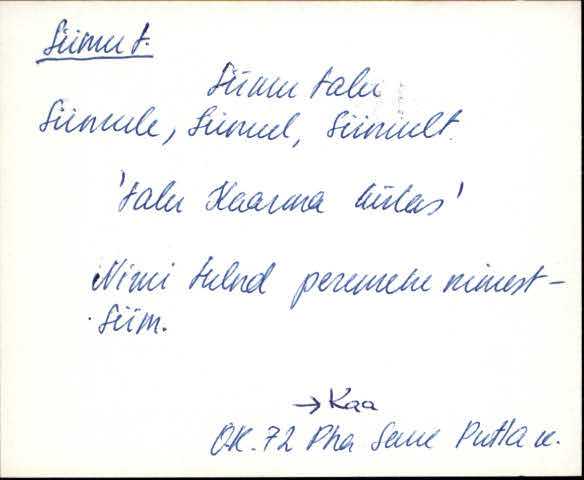 Siimu t.
Siimu talu
Siimule, Siimul, Siimult.
'talu Kaarma külas'
Nimi tulnd peremehe nimest –
Siim.
→ Kaa
O.K. 72 Pha Putla k.